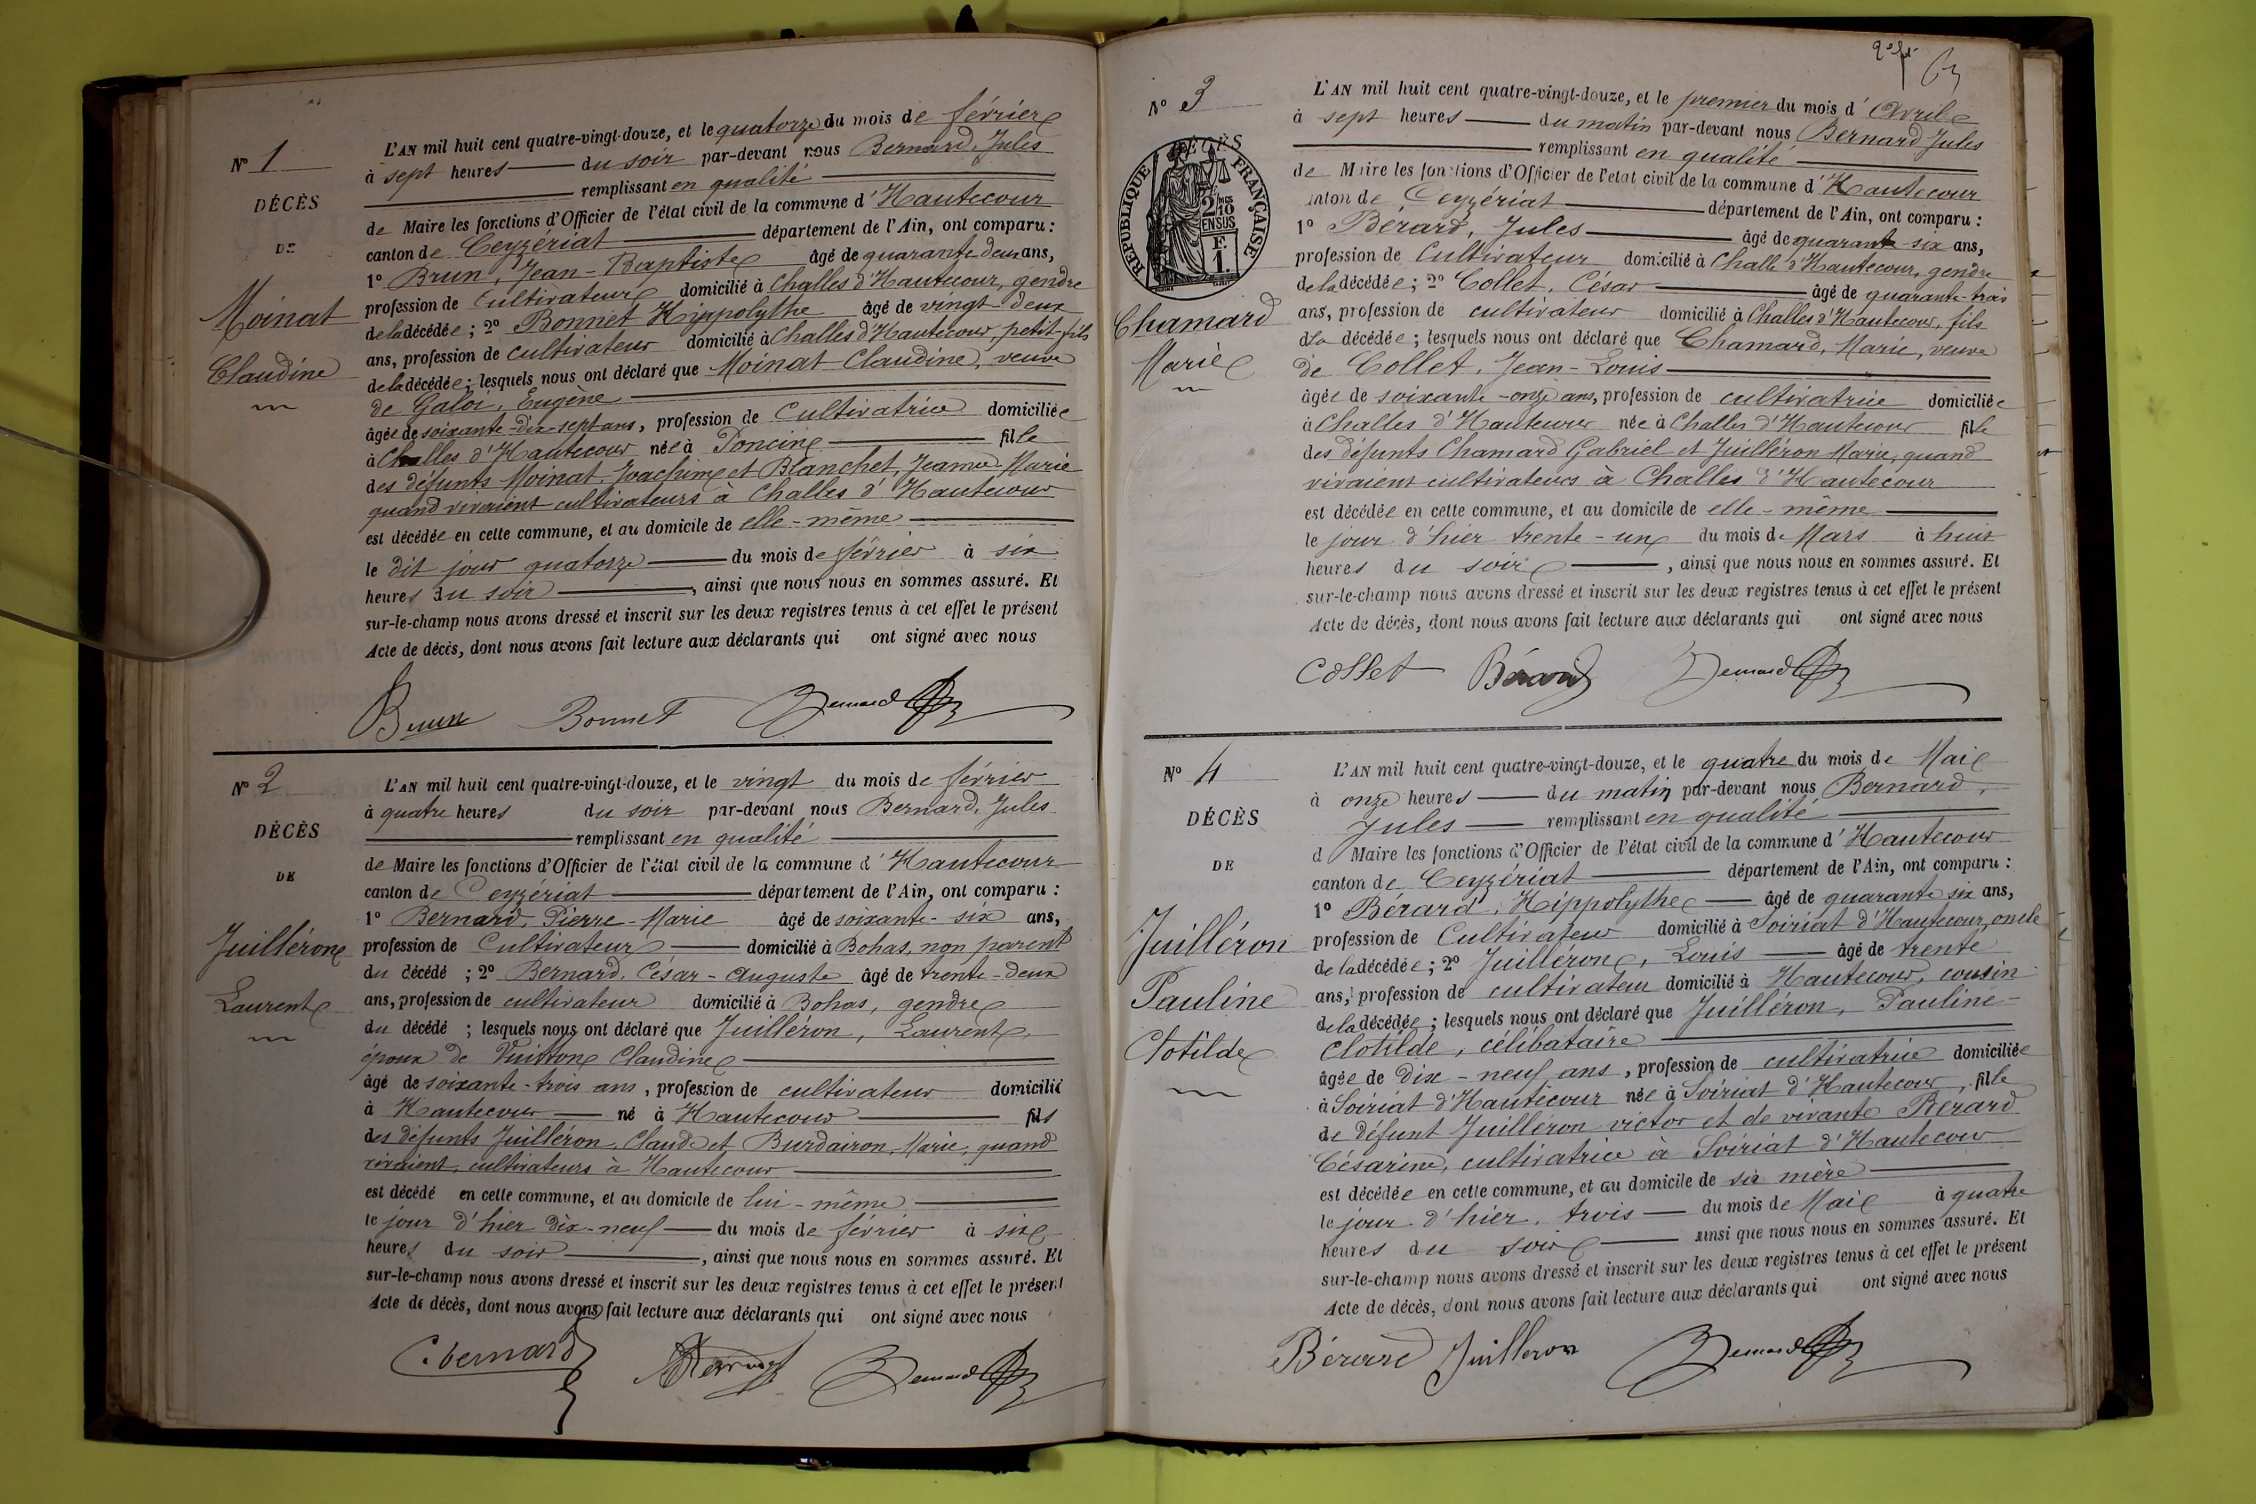 N° 1
DÉCÈS
DE
Moinat
Claudine
L'AN mil huit cent quatre-vingt-douze, et le quatorze du mois de février
à sept heures du soir par-devant nous Bernard, Jules
remplissant en qualité
de Maire les fonctions d'Officier de l'état civil de la commune d'Hautecour
canton de Ceyzériat département de l'Ain, ont comparu :
1° Brun, Jean-Baptiste âgé de quarante-deux ans,
profession de cultivateur domicilié à Challes d'Hautecour, gendre
de la décédée ; 2° Bonnet Hippolythe âgé de vingt-deux
ans, profession de cultivateur domicilié à Challes d'Hautecour, petit-fils
de la décédée ; lesquels nous ont déclaré que Moinat Claudine, veuve
de Galoi, Eugène
âgée de soixante-dix-sept ans, profession de Cultivatrice domiciliée
à Challes d'Hautecour née à Poncin fille
des défunts Moinat, Joachim et Blanchet, Jeanne-Marie
quand vivaient cultivateurs à Challes d'Hautecour
est décédée en cette commune, et au domicile de elle-même
le dit jour quatorze du mois de février à six
heures du soir, ainsi que nous nous en sommes assuré. Et
sur-le-champ nous avons dressé et inscrit sur les deux registres tenus à cet effet le présent
Acte de décès, dont nous avons fait lecture aux déclarants qui ont signé avec nous
Brun Bonnet Bernard
N° 2
DÉCÈS
DE
Juilléron
Laurent
L'AN mil huit cent quatre-vingt-douze, et le vingt du mois de février
à quatre heures du soir par-devant nous Bernard, Jules
remplissant en qualité
de Maire les fonctions d'Officier de l'état civil de la commune d'Hautecour
canton de Ceyzériat département de l'Ain, ont comparu :
1° Bernard, Pierre-Marie âgé de soixante-six ans,
profession de Cultivateur domicilié à Bohas, non parent
du décédé ; 2° Bernard, César-Auguste âgé de trente-deux
ans, profession de cultivateur domicilié à Bohas, gendre
du décédé ; lesquels nous ont déclaré que Juilléron, Laurent,
époux de Vuitton Claudine
âgé de soixante-trois ans, profession de cultivateur domicilié
à Hautecour né à Hautecour fils
des défunts Juilléron, Claude et Burdairon, Marie, quand
vivaient, cultivateurs à Hautecour
est décédé en cette commune, et au domicile de lui-même
le jour d'hier dix-neuf du mois de février à six
heures du soir, ainsi que nous nous en sommes assuré. Et
sur-le-champ nous avons dressé et inscrit sur les deux registres tenus à cet effet le présent
Acte de décès, dont nous avons fait lecture aux déclarants qui ont signé avec nous
C. bernard Bernard
N° 3
DÉCÈS
RÉPUBLIQUE FRANÇAISE
2/10
EN SUS
F.
1.
Chamard
Marie
L'AN mil huit cent quatre-vingt-douze, et le premier du mois d'Avril
à sept heures du matin par-devant nous Bernard Jules
remplissant en qualité
de Maire les fonctions d'Officier de l'état civil de la commune d'Hautecour
canton de Ceyzériat département de l'Ain, ont comparu :
1° Bérard, Jules âgé de quarante-six ans,
profession de Cultivateur domicilié à Challe d'Hautecour, gendre
de la décédée ; 2° Collet, César âgé de quarante-trois
ans, profession de cultivateur domicilié à Challes d'Hautecour, fils
d la décédée ; lesquels nous ont déclaré que Chamard, Marie, veuve
de Collet, Jean-Louis
âgée de soixante-onze ans, profession de cultivatrice domiciliée
à Challes d'Hautecour née à Challes d'Hautecour fille
des défunts Chamard Gabriel et Juilléron Marie, quand
vivaient cultivateurs à Challes d'Hautecour
est décédée en cette commune, et au domicile de elle-même
le jour d'hier trente-un du mois de Mars à huit
heures du soir, ainsi que nous nous en sommes assuré. Et
sur-le-champ nous avons dressé et inscrit sur les deux registres tenus à cet effet le présent
Acte de décès, dont nous avons fait lecture aux déclarants qui ont signé avec nous
Collet Bérard Bernard
N° 4
DÉCÈS
DE
Juilléron
Pauline
Clotilde
L'AN mil huit cent quatre-vingt-douze, et le quatre du mois de Mai
à onze heures du matin par-devant nous Bernard,
Jules remplissant en qualité
d Maire les fonctions d'Officier de l'état civil de la commune d'Hautecour
canton de Ceyzériat département de l'Ain, ont comparu :
1° Bérard, Hippolythe âgé de quarante six ans,
profession de Cultivateur domicilié à Soiriat d'Hautecour, oncle
de la décédée ; 2° Juilléron, Louis âgé de trente
ans, profession de cultivateur domicilié à Hautecour, cousin
de la décédée ; lesquels nous ont déclaré que Juilléron, Pauline-
Clotilde, célibataire
âgée de dix-neuf ans, profession de cultivatrice domiciliée
à Soiriat d'Hautecour née à Soiriat d'Hautecour, fille
de défunt Juilléron victor et de vivante Berard
Césarine, cultivatrice à Soiriat d'Hautecour
est décédée en cette commune, et au domicile de sa mère
le jour d'hier, trois du mois de Mai à quatre
heures du soir ainsi que nous nous en sommes assuré. Et
sur-le-champ nous avons dressé et inscrit sur les deux registres tenus à cet effet le présent
Acte de décès, dont nous avons fait lecture aux déclarants qui ont signé avec nous
Bérard Juilleron Bernard